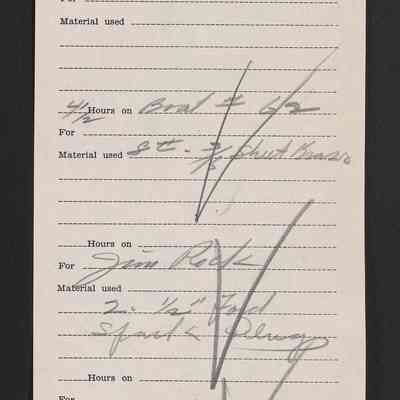 For
Material used
4½ Hours on Boat # 62
For
Material used 8 ft. - 3/8 Sheet Brass
Hours on
For Jim Rock
Material used
2. ½" Ford
Spark Plugs
Hours on
For